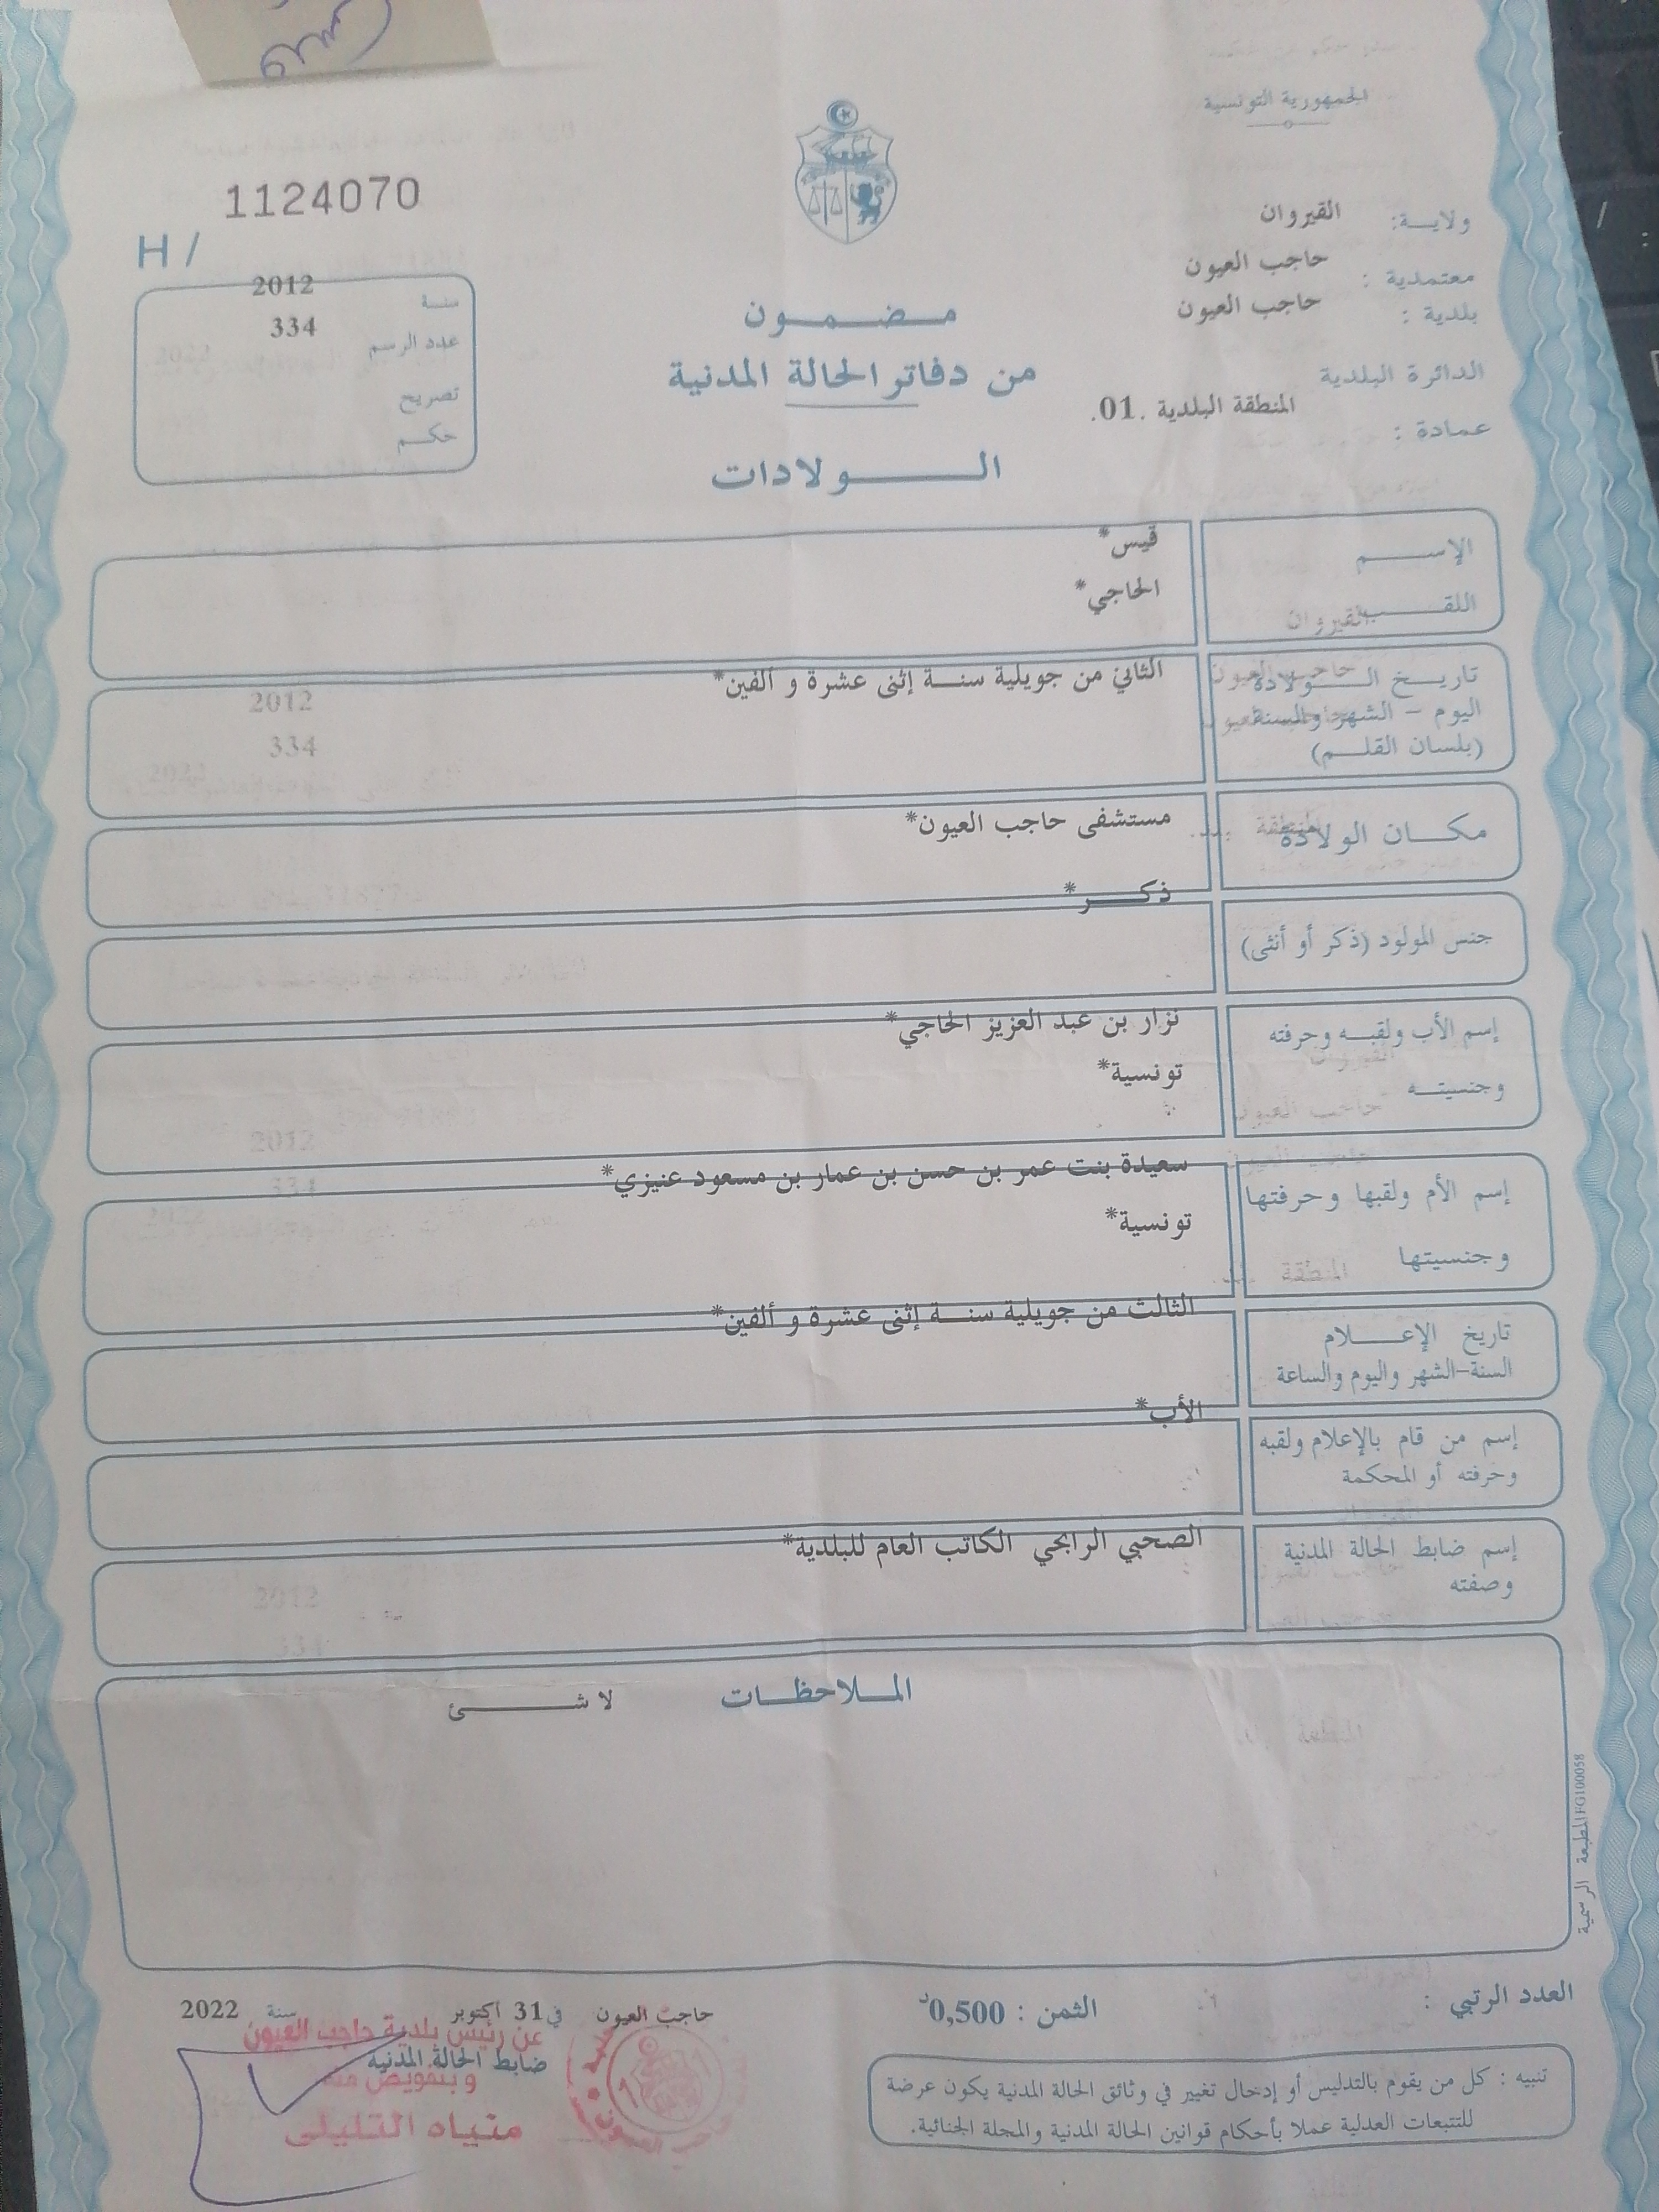 الجمهورية التونسية
1124070
H/
ولايـــة: القيروان
معتمدية : حاجب العيون
بلدية : حاجب العيون
الدائرة البلدية
المنطقة البلدية .01.
عمادة :
سنـــة 2012
عدد الرسم 334
تصريح
حكـــم
مـــضـــمـــون
من دفاتر الحالة المدنية
الـــــولادات
الإســـــم قيس*
اللقـــــب الحاجي*
تاريـــخ الـــــولادة الثاني من جويلية سنـــة إثنى عشرة و ألفين*
اليوم - الشهر والسنة
(بلسان القلـــم)
مكـــان الولادة مستشفى حاجب العيون*
ذكـــر*
جنس المولود (ذكر أو أنثى)
إسم الأب ولقبـــه وحرفته نزار بن عبد العزيز الحاجي*
وجنسيتـــه تونسية*
إسم الأم ولقبها وحرفتها سعيدة بنت عمر بن حسن بن عمار بن مسعود عنيزي*
وجنسيتها تونسية*
تاريخ الإعـــــلام الثالث من جويلية سنـــة إثنى عشرة و ألفين*
السنة-الشهر واليوم والساعة
الأب*
إسم من قام بالإعلام ولقبه
وحرفته أو المحكمة
إسم ضابط الحالة المدنية الصحبي الرابحي الكاتب العام للبلدية*
وصفته
المـــلاحظـــات لا شـــــئ
المطبعة الرسمية FG100058
العدد الرتبي :
الثمن : 0,500د
حاجب العيون في 31 اكتوبر سنة 2022
عن رئيس بلدية حاجب العيون
ضابط الحالة المدنية
و بتفويض منه
منياه التليلي
تنبيه : كل من يقوم بالتدليس أو إدخال تغيير في وثائق الحالة المدنية يكون عرضة
للتتبعات العدلية عملا بأحكام قوانين الحالة المدنية والمجلة الجنائية.